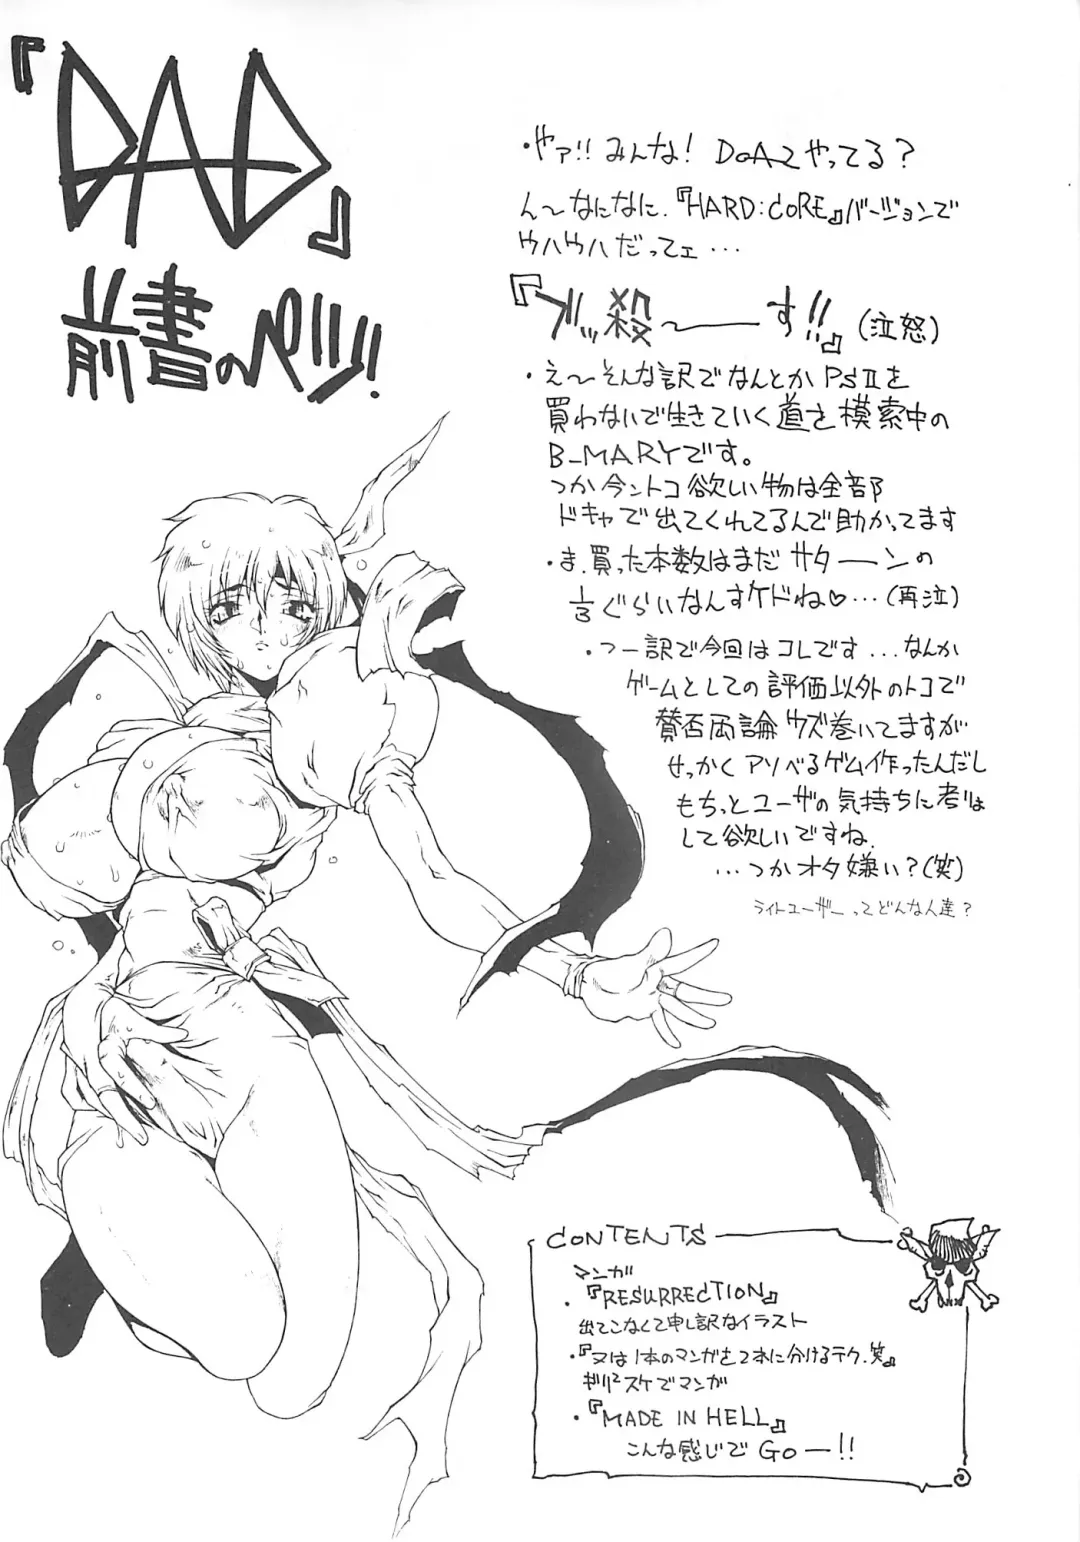 『DAD』
前書のペェジ!
・やァ!!みんな! DoA2やってる?
ん〜なになに、『HARD:CORE』バージョンで
ウハウハだってェ・・・
『ブッ殺〜――す!!』(泣怒)
・え〜そんな訳でなんとかPSⅡを
買わないで生きていく道を模索中の
B_MARYです。
つか今ントコ欲しい物は全部
ドキャで出てくれてるんで助かってます
・ま、買った本数はまだサターーンの
1/3ぐらいなんすケドね♡・・・(再泣)
・つー訳で今回はコレです...なんか
ゲームとしての評価以外のトコで
賛否両論ウズ巻いてますが
せっかくアソべるゲム作ったんだし
もちっとユーザの気持ちに考慮
して欲しいですね
...つかオタ嫌い?(笑)
ライトユーザーってどんな人達?
CONTENTS
マンガ
・『RESURRECTION』
出てこなくて申し訳なイラスト
・『又は1本のマンガを2本に分けるテク.笑』
ギリ²スケでマンガ
・『MADE IN HELL』
こんな感じで GO―!!